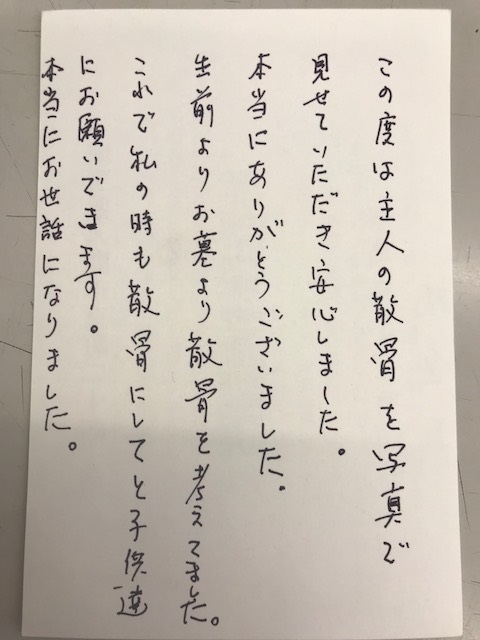 この度は主人の散骨を写真で
見せていただき安心しました。
本当にありがとうございました。
生前よりお墓より散骨を考えてました。
これで私の時も散骨にしてと子供達
にお願いできます。
本当にお世話になりました。